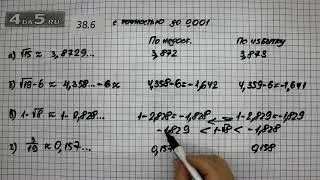 4DS.RU
38.6 с точностью до 0,001
По недост. По избытку
а) √15 ≈ 3,8729... 3,872 3,873
б) √19-6 ≈ 4,358...-6≈ 4,358-6=-1,642 4,359-6=-1,641
в) 1-√8 ≈ 1-2,828... 1-2,828=-1,828 1-2,829=-1,829
-1,829 < 1-√8 < -1,828
г) 3/19 ≈ 0,157... 0,157 0,158